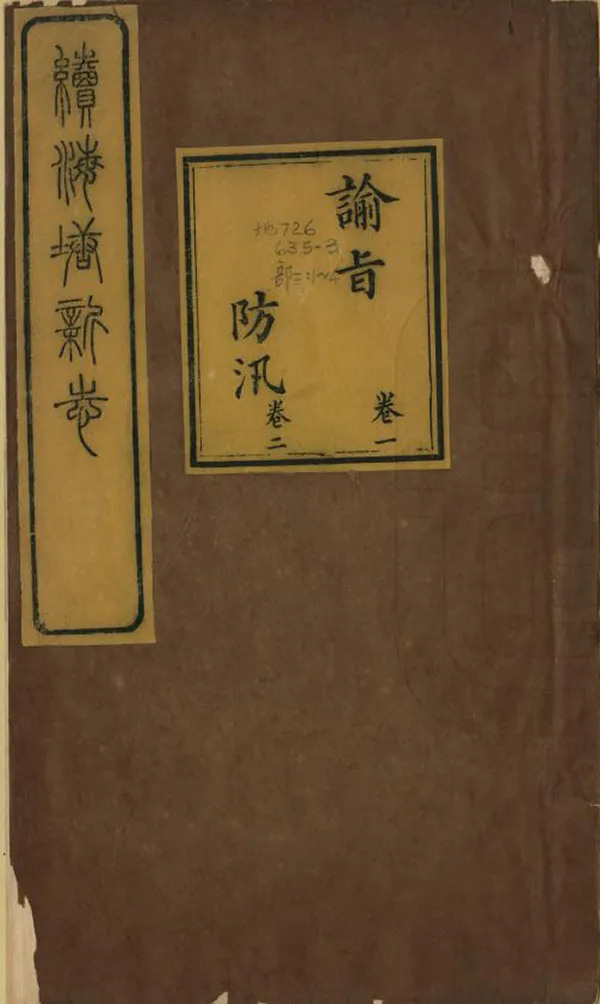 續海塘新志
諭旨 卷一
防汛 卷二
地726
635-3
部二:1~4